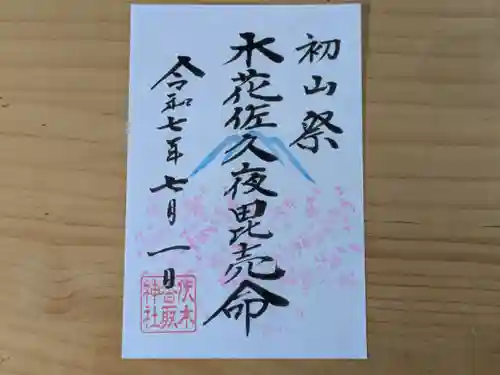 初山祭
木花佐久夜毘売命
令和七年七月一日
茨木
香取
神社